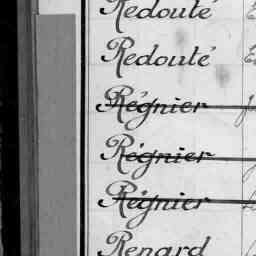 Redouté
Redouté
Régnier
Régnier
Régnier
Renard